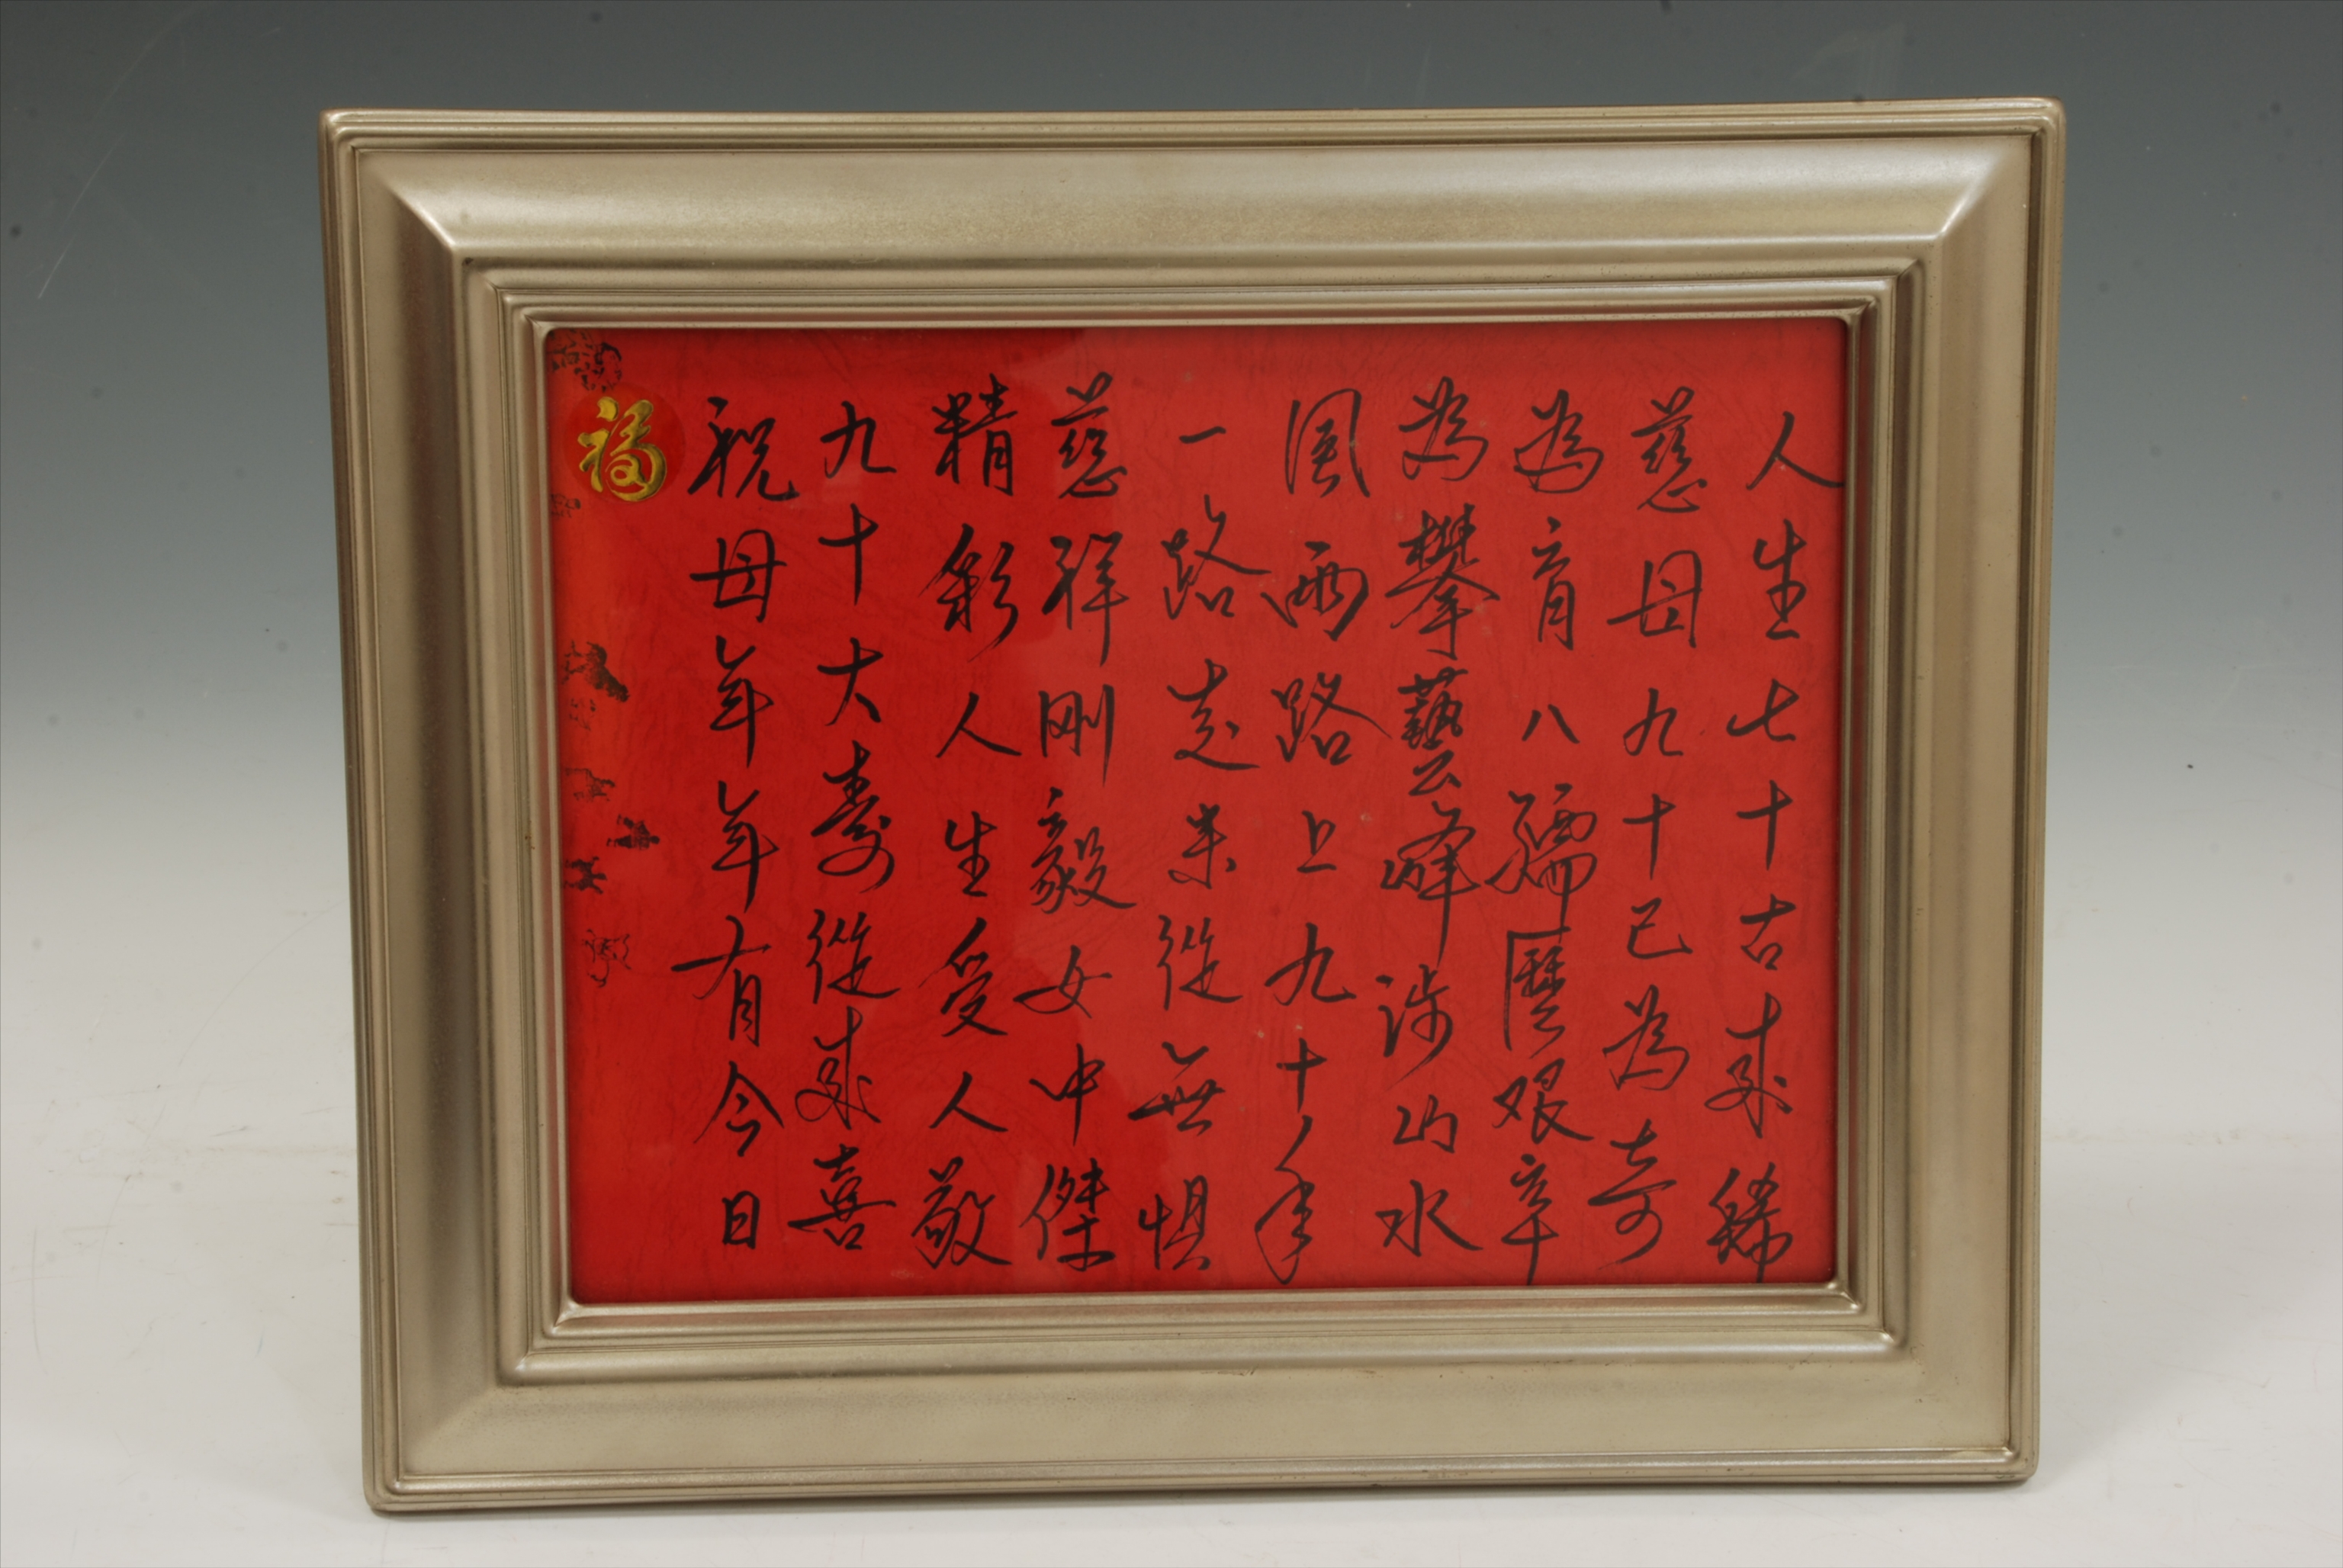 人生七十古來稀
慈母九十已為奇
為育八孺歷艱辛
為攀藝峰涉山水
風雨路上九十年
一路走來從無懼
慈祥剛毅女中傑
精彩人生受人敬
九十大壽從來喜
祝母年年有今日
福